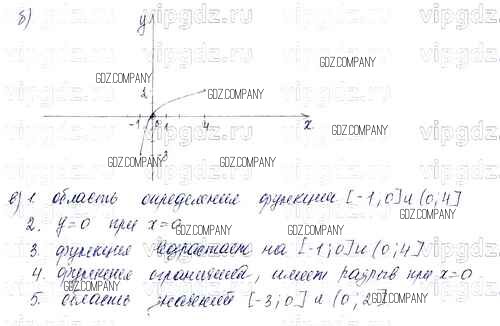 б)
y
2
-1 0 1 4 x
-3
в) 1. область определения функции [-1;0] и (0;4]
2. y=0 при x=0
3. функция возрастает на [-1;0] и (0;4]
4. функция ограничена, имеет разрыв при x=0
5. область значений [-3;0] и (0;2]
GDZ.COMPANY
vipgdz.ru